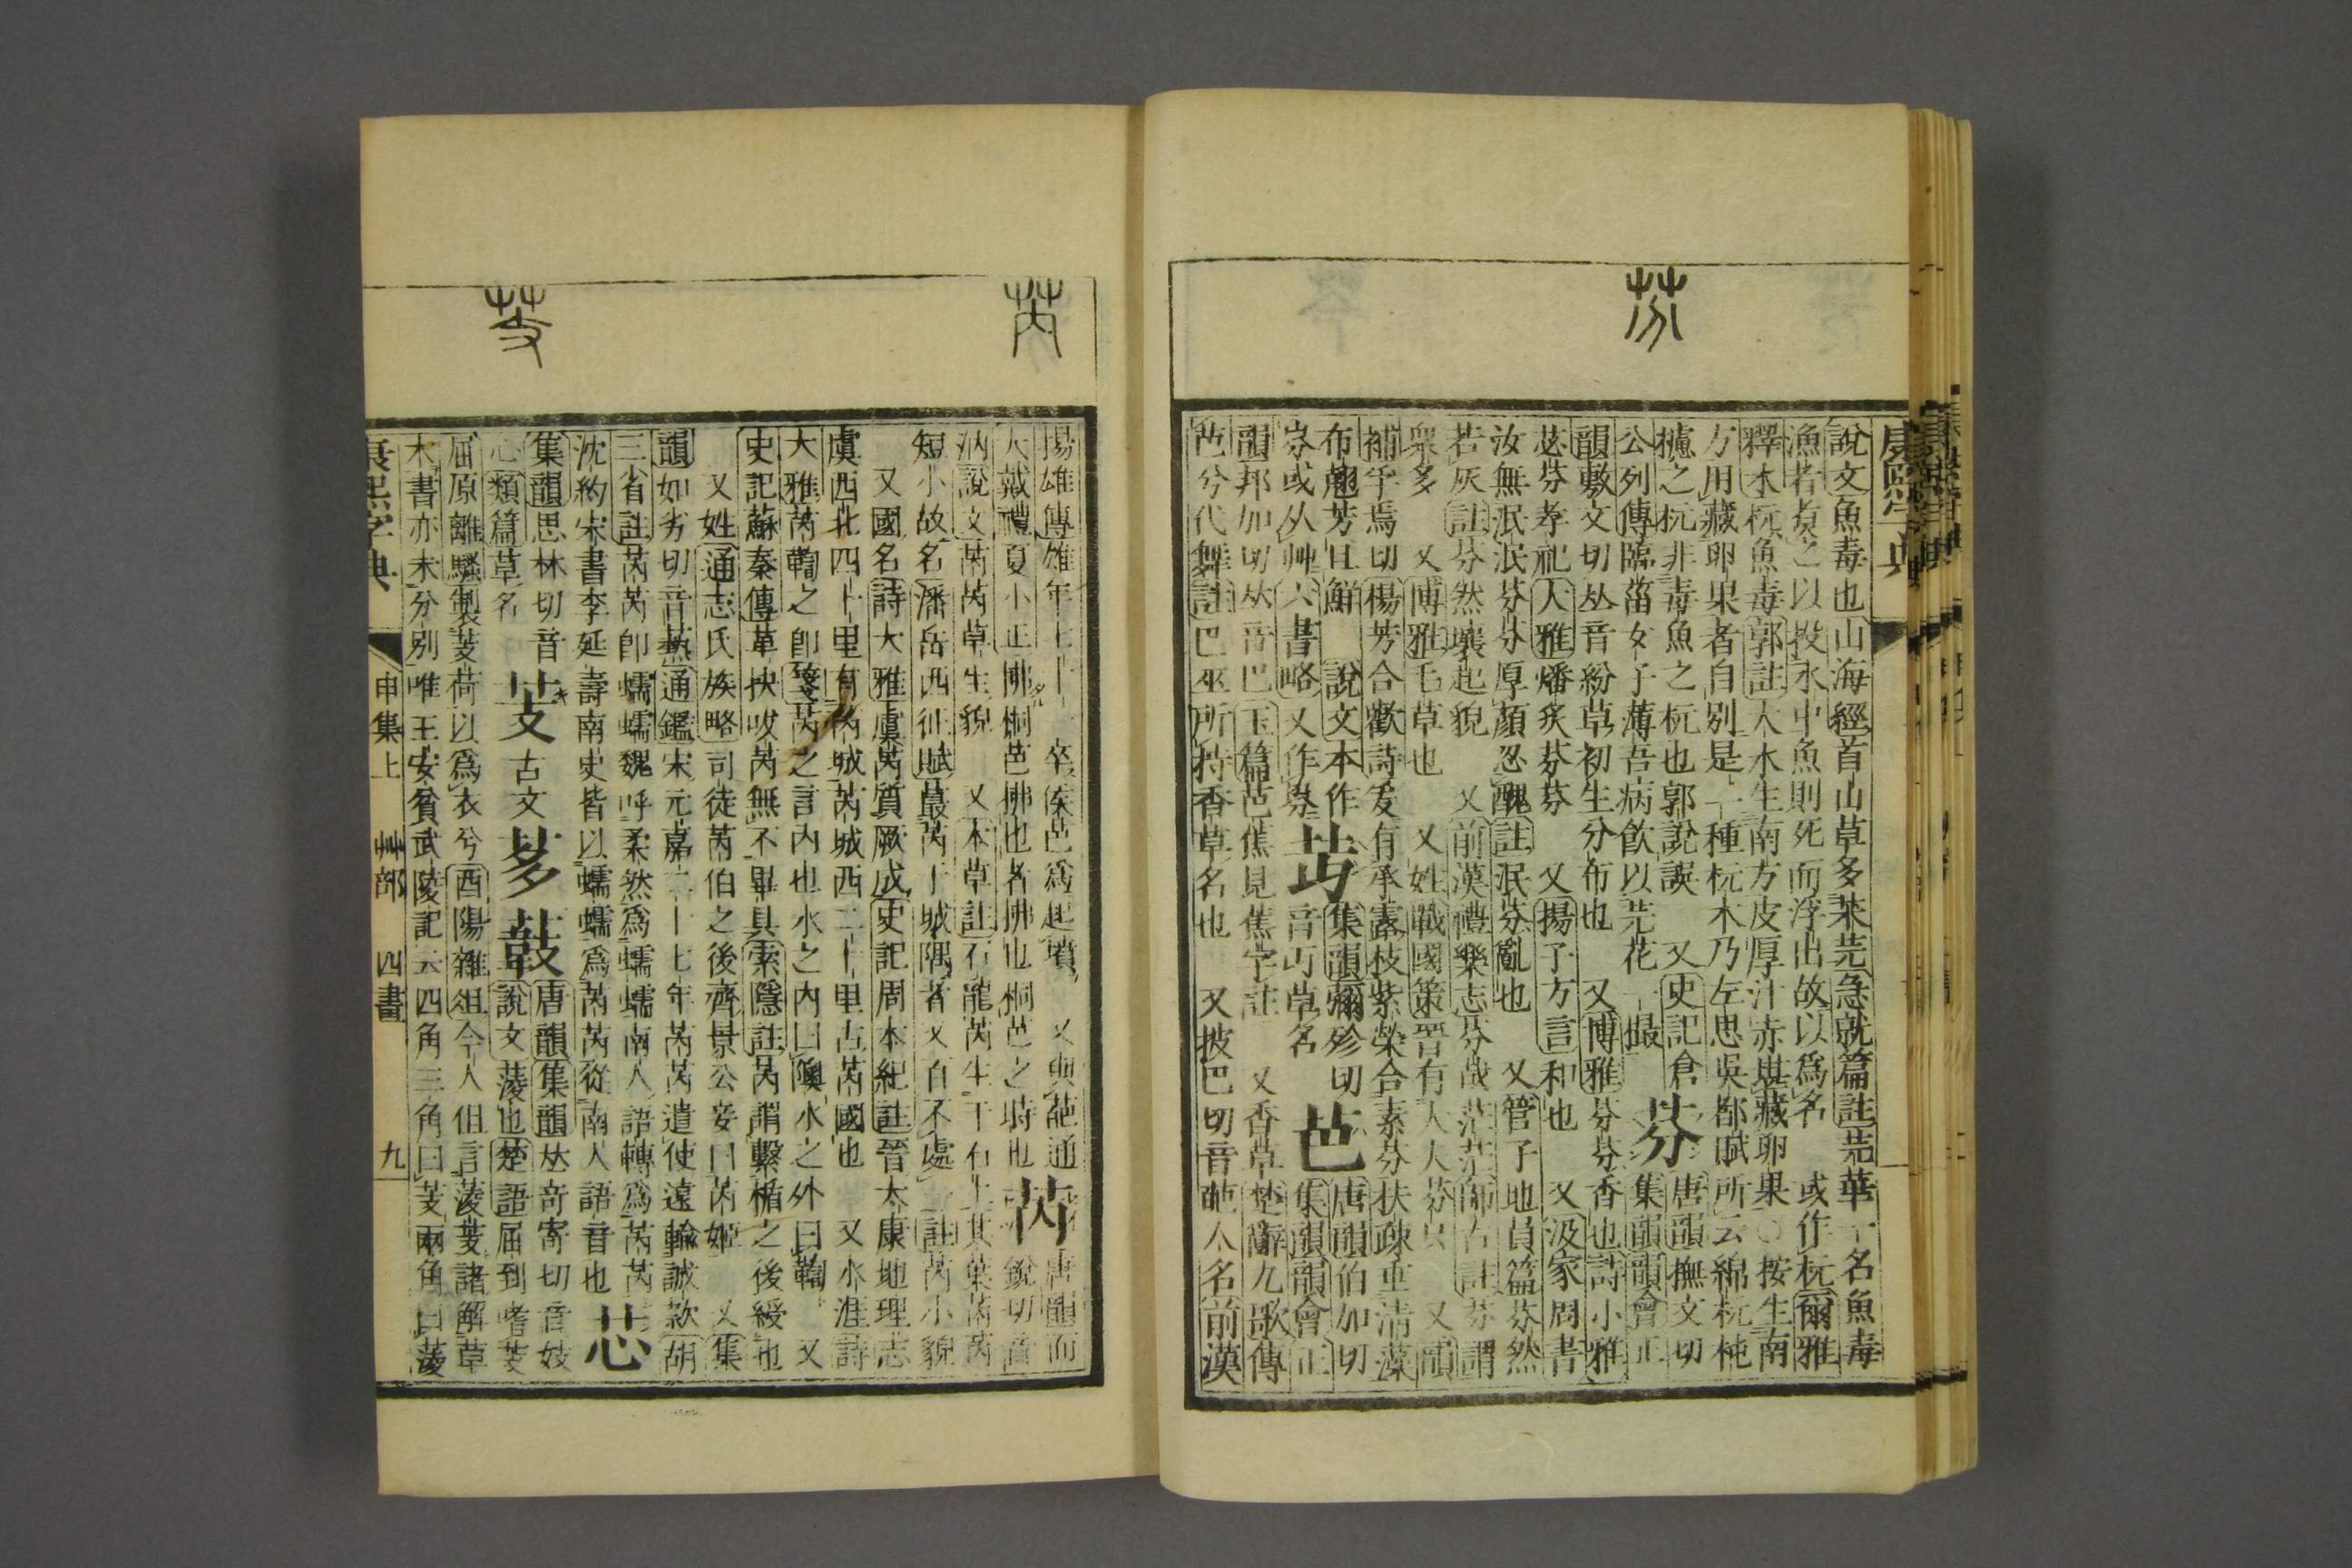 康熙字典
芬
說文魚毒也山海經首山草多茱芫急就篇註芫華一名魚毒
漁者煮之以投水中魚則死而浮出故以爲名 或作杬爾雅
釋木杬魚毒郭註大木生南方皮厚汁赤堪藏卵果○按生南
方用藏卵果者自別是一種杬木乃左思吳都賦所云綿杬杶
攎之杬非毒魚之杬也郭說誤 又史記倉
公列傳臨菑女子薄吾病飮以芫花一撮
芬 唐韻撫文切
集韻韻會正
韻敷文切𠀤音紛草初生分布也 又博雅芬芬香也詩小雅
苾芬孝祀大雅燔炙芬芬 又揚子方言和也 又汲冢周書
汝無泯泯芬芬厚顏忍醜註泯芬亂也 又管子地員篇芬然
若灰註芬然壤起貌 又前漢禮樂志芬哉茫茫師古註芬謂
衆多 又博雅毛草也 又姓戰國策晉有大夫芬質 又韻
補孚焉切楊芳合歡詩爰有承露枝紫榮合素芬扶疎垂清藻
布翹芳且鮮 說文本作
岁或从艸六書略又作芬
芇 集韻彌殄切
音丏草名
芭 唐韻伯加切
集韻韻會正
韻邦加切𠀤音巴玉篇芭蕉見蕉字註 又香草楚辭九歌傳
芭兮代舞註巴巫所持香草名也 又披巴切音葩人名前漢
芮
芰
揚雄傳雄年七十一卒侯芭爲起墳 又與葩通
大戴禮夏小正拂桐芭拂也者拂也桐芭之時也
芮 唐韻而
銳切音
汭說文芮芮草生貌 又本草註石龍芮生于石上其葉芮芮
短小故名潘岳西征賦蕞芮于城隅者又百不處一註芮小貌
又國名詩大雅虞芮質厥成史記周本紀註晉太康地理志
虞西北四十里有芮城芮城西二十里古芮國也 又水涯詩
大雅芮鞫之卽箋芮之言內也水之內曰隩水之外曰鞫 又
史記蘇秦傳革抉㕹芮無不畢具索隱註芮謂繫楯之後綬也
又姓通志氏族略司徒芮伯之後齊景公妾曰芮姬 又集
韻如劣切音爇通鑑宋元嘉二十七年芮芮遣使遠輸誠款胡
三省註芮芮卽蠕蠕魏呼柔然爲蠕蠕南人語轉爲芮芮
沈約宋書李延壽南史皆以蠕蠕爲芮芮從南人語音也
芯
集韻思林切音
心類篇草名
芰 古文 茤 䓻 唐韻集韻𠀤奇寄切音妓
說文蔆也楚語屈到嗜芰
屈原離騷製芰荷以爲衣兮酉陽雜俎今人但言蔆芰諸解草
木書亦未分別唯王安貧武陵記云四角三角曰芰兩角曰蔆
康熙字典 申集上 艸部 四畫 九